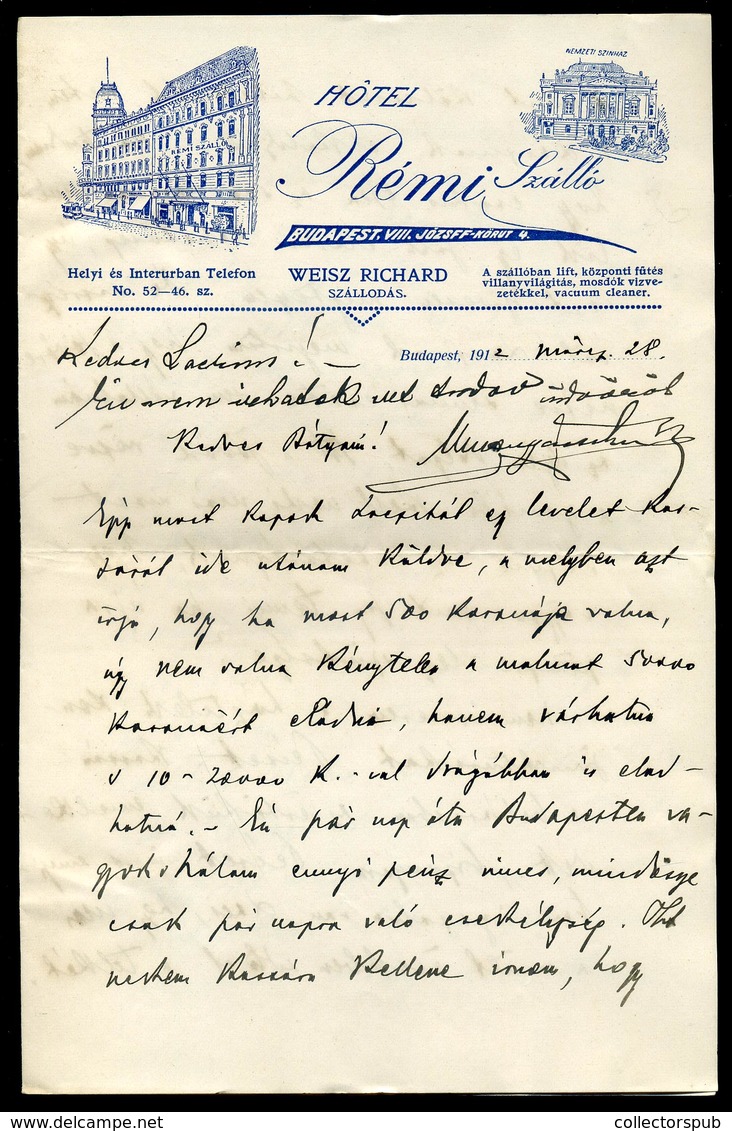 NEMZETI SZINHAZ
HÔTEL
RÉMI SZÁLLÓ
Rémi Szálló
BUDAPEST. VIII. JÓZSEF-KÖRUT 4.
Helyi és Interurban Telefon
No. 52—46. sz.
WEISZ RICHARD
SZÁLLODÁS.
A szállóban lift, központi fűtés
villanyvilágitás, mosdók vizve-
zetékkel, vacuum cleaner.
Budapest, 1912 márcz. 28.
Kedves !—
Én nem
Kedves Bátyám!
Épp most kapok egy levelet Kas-
sáról ide utánam küldve, a melyben azt
írja, hogy ha most 500 koronája volna,
úgy nem volna kénytelen a malmot 50000
koronáért eladni, hanem várhatna
s 10-20000 K.-val drágábban is elad-
hatná.- Én pár nap óta Budapesten va-
gyok s nálam ennyi pénz nincs, mindössze
csak pár napra való csekélység. Itt
nekem Kassára kellene írnom, hogy
collectorspub